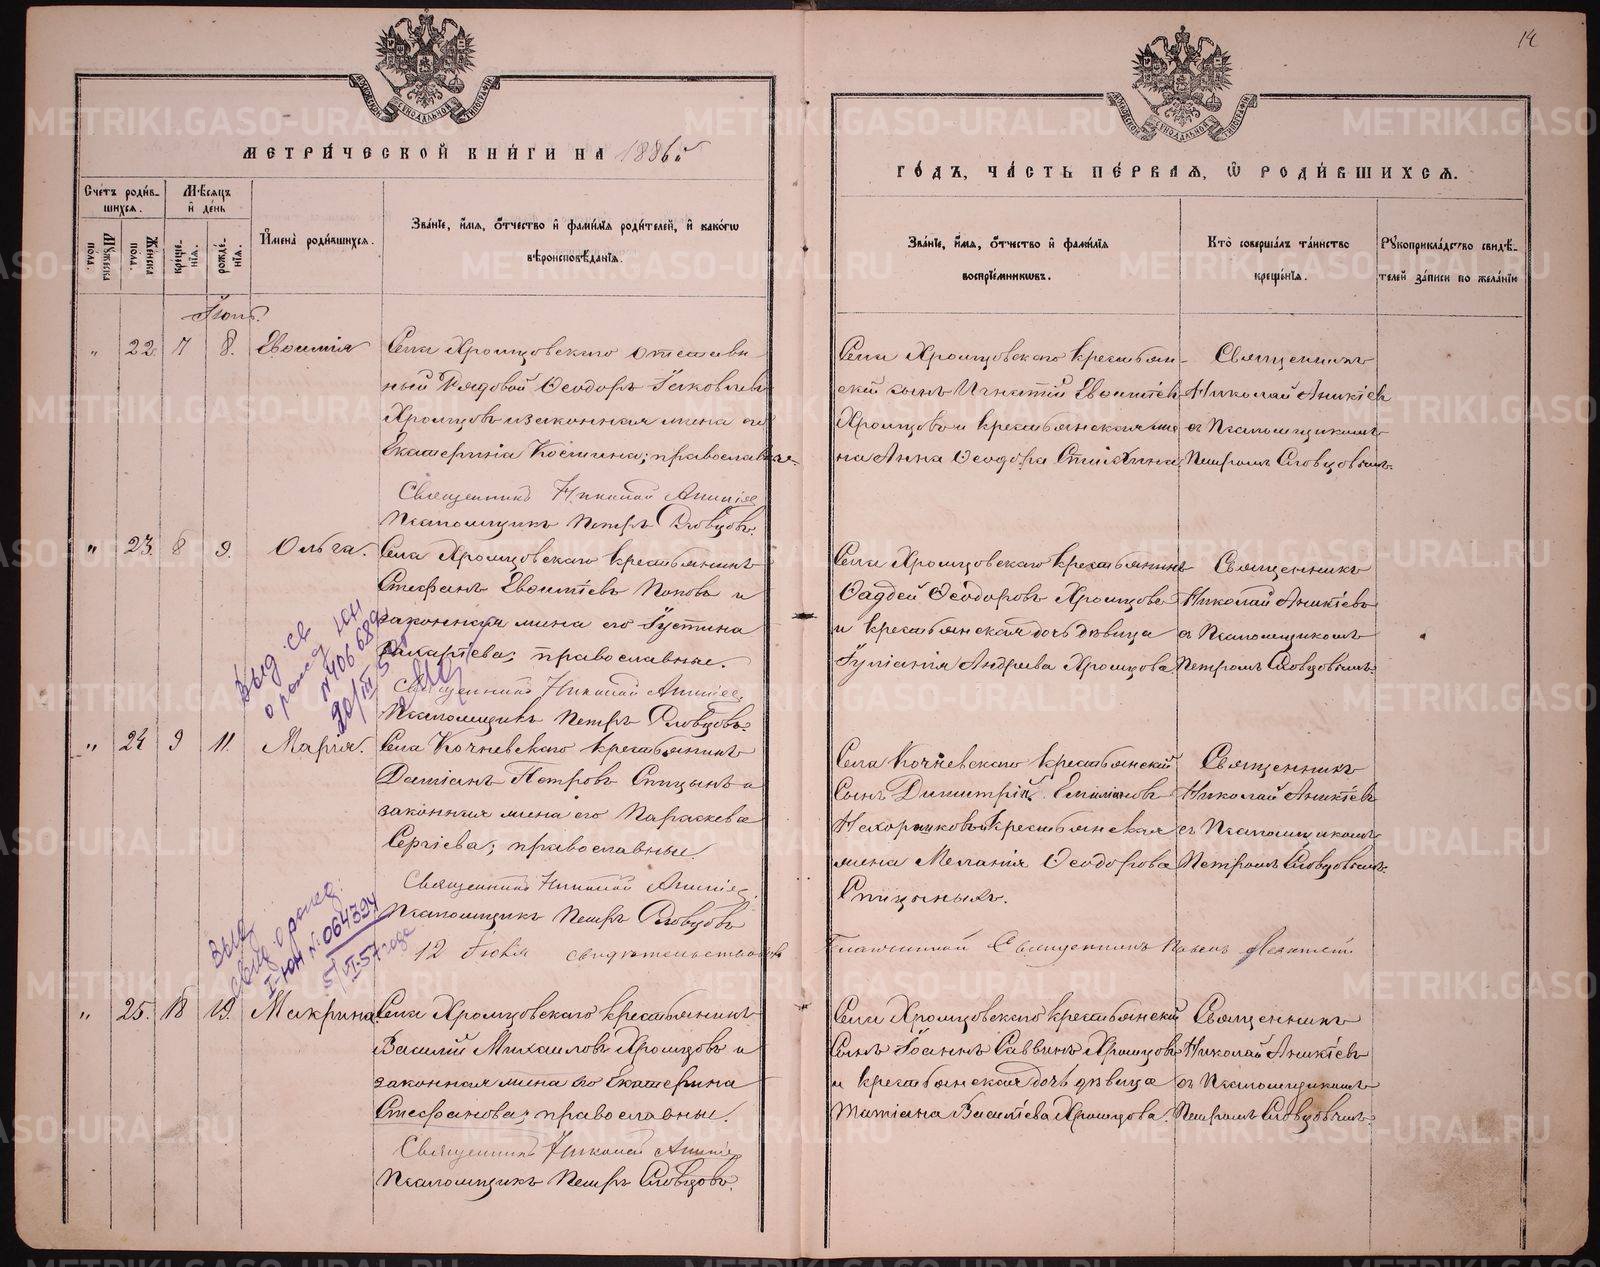 14
МЕТРИ́ЧЕСКОЙ КНИ́ГИ НА 1886й
ГО́ДЪ, ЧА́СТЬ ПЕ́РВАЯ, Ѽ РОДИ́ВШИХСЯ.
Сче́тъ роди́в-
шихся.
Мѣ́сяцъ
и҆ де́нь
Му́жеска
пола.
Же́нска
пола.
креще́-
нїѧ.
рожде́-
нїѧ.
И҆мена̀ роди́вшихся.
Зва́нїе, и҆́мя, ѻ҆́тчество и҆ фами́лїя роди́телей, и҆ како́гѡ
вѣроисповѣ́данїя.
Зва́нїе, и҆́мя, ѻ҆́тчество и҆ фами́лїя
воспрїе́мникѡвъ.
Кто̀ соверша́лъ та́инство
креще́нїя.
Рꙋкоприкла́дство свидѣ́-
телей за́писи по жела́нїю
Іюль.
" 22. 7 8. Евѳимія
Села Хромцовскаго отставн-
ный Рядовой Ѳеодоръ Іаковлевъ
Хромцовъ и законная жена его
Екатерина Космина; православные.
Священникъ Николай Аникіев
Псаломщикъ Петръ Словцовъ.
Села Хромцовскаго крестьян-
скій сынъ Игнатій Евѳиміев
Хромцовъ и крестьянская же-
на Анна Ѳеодора
Священникъ
Николай Аникіевъ
съ Псаломщикомъ
Петромъ Словцовымъ.
" 23. 8 9. Ольга.
Села Хромцовскаго крестьянинъ
Стефанъ Евѳиміевъ Поповъ и
законная жена его Іустина
Захаріева; православные.
Священникъ Николай Аникіев
Псаломщикъ Петръ Словцовъ.
Села Хромцовскаго крестьянинъ
Ѳаддей Ѳеодоровъ Хромцовъ
и крестьянская дочь дѣвица
Іуліанія Андреева Хромцова.
Священникъ
Николай Аникіевъ
съ Псаломщикомъ
Петромъ Словцовымъ.
Выд. св
о рожд ЮН
№406689
20/III 5
" 24 9 11. Марія.
Села Кочневскаго крестьянинъ
Даміанъ Петровъ Спицынъ и
законная жена его Параскева
Сергіева; православные.
Священникъ Николай Аникіев
Псаломщикъ Петръ Словцовъ
Села Кочневскаго крестьянскій
сынъ Димитрій Емиліановъ
крестьянская
жена Меланія Ѳеодорова
Спицыныхъ.
Священникъ
Николай Аникіевъ
съ Псаломщикомъ
Петромъ Словцовымъ.
12 Іюля свидѣтельствовалъ
Благочинный Священникъ
Выд
свид. о рожд.
I-ЮН №064394
5/VI-57 года
" 25. 18 19. Макрина.
Села Хромцовскаго крестьянинъ
Василій Михаиловъ Хромцовъ и
законная жена его Екатерина
Стефанова; православные.
Священникъ Николай Аникіев
Псаломщикъ Петръ Словцовъ.
Села Хромцовскаго крестьянскій
сынъ Іоаннъ Саввинъ Хромцовъ
и крестьянская дочь дѣвица
Татіана Василіева Хромцова.
Священникъ
Николай Аникіевъ
съ Псаломщикомъ
Петромъ Словцовымъ.
METRIKI.GASO-URAL.RU